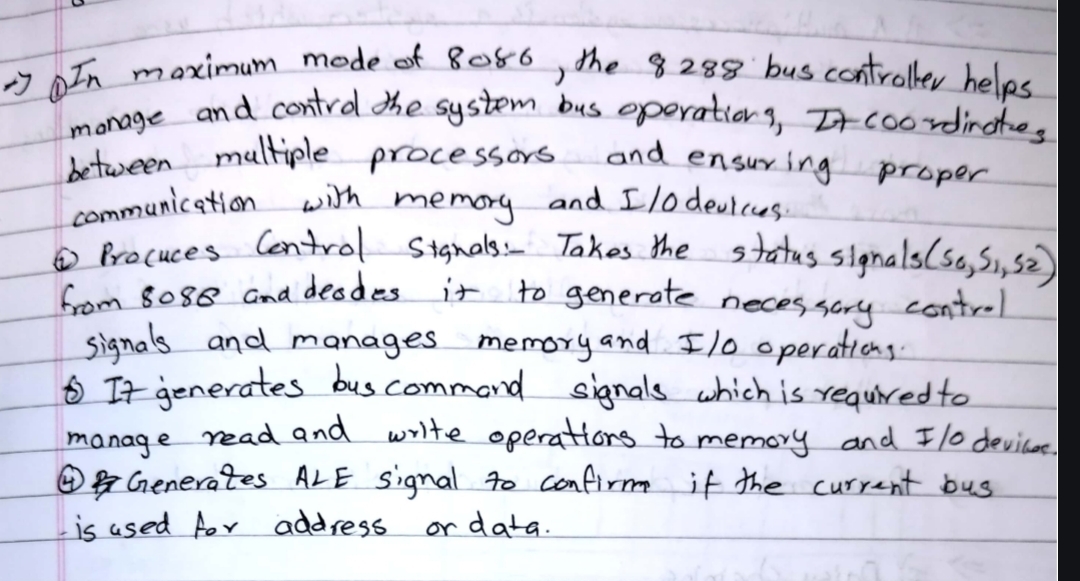 → ① In maximum mode of 8086, the 8288 bus controller helps
manage and control the system bus operations, It coordinates
between multiple processors and ensuring proper
communication with memory and I/O devices.
② Procuces Control Signals:- Takes the status signals (S0, S1, S2)
from 8086 and decodes it to generate necessary control
signals and manages memory and I/O operations.
③ It generates bus command signals which is required to
manage read and write operations to memory and I/O devices.
④ Generates ALE signal to confirm if the current bus
is used for address or data.